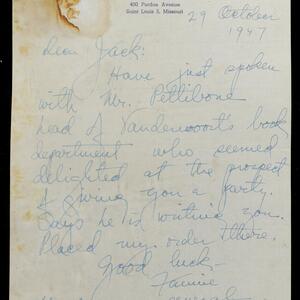 400 Purdue Avenue
Saint Louis 5, Missouri
29 October
1947
Dear Jack:
Have just spoken
with Mr. Pettibone
head of Vandervoort's book
department who seemed
delighted at the prospect
of giving you a party.
Says he is writing you.
Placed my order there.
Good luck-
Fannie